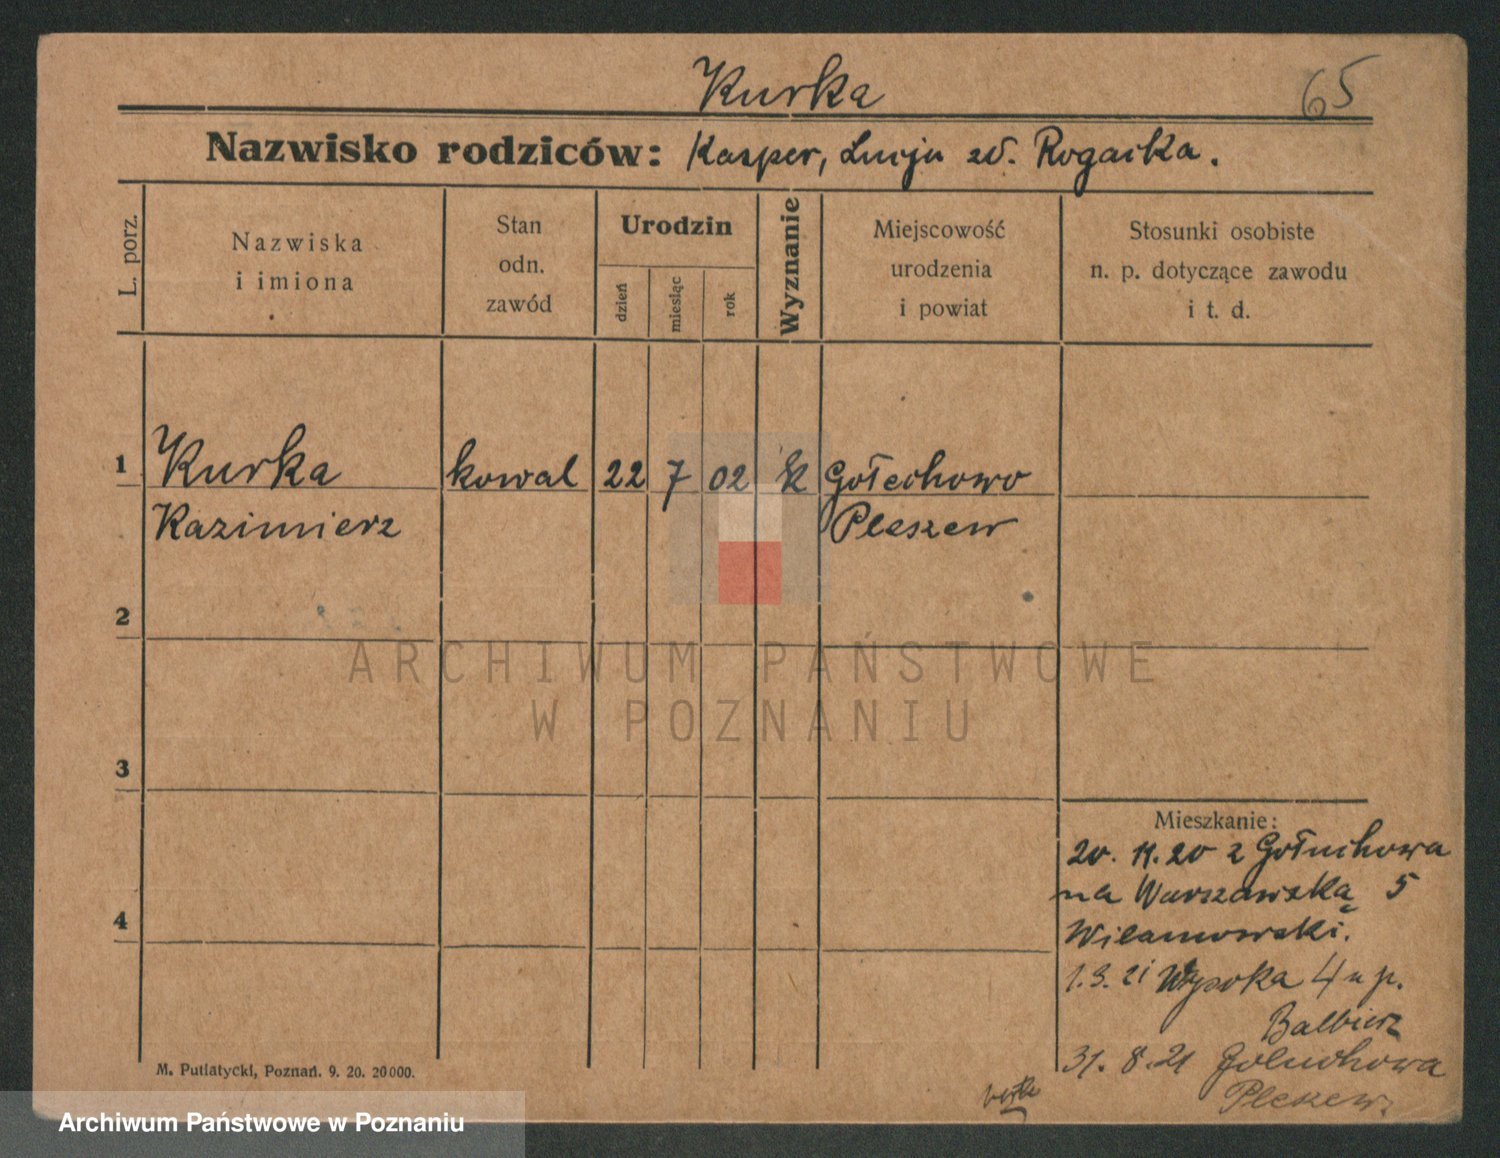 Kurka
65
Nazwisko rodziców: Kasper, Lucja zd. Rogacka.
L. porz.
Nazwiska
i imiona
Stan
odn.
zawód
Urodzin
dzień
miesiąc
rok
Wyznanie
Miejscowość
urodzenia
i powiat
Stosunki osobiste
n. p. dotyczące zawodu
i t. d.
1 Kurka kowal 22 7 02 k Gołechowo
Kazimierz Pleszew
2
ARCHIWUM PAŃSTWOWE
W POZNANIU
3
Mieszkanie:
20. 11. 20 z Gołuchowa
na Warszawską 5
Wilamowski.
4
1. 3. 21 Wysoka 4 u p.
Balbierz
31. 8. 21 Gołuchowa
Pleszew
M. Putiatycki, Poznań. 9. 20. 20000.
Archiwum Państwowe w Poznaniu